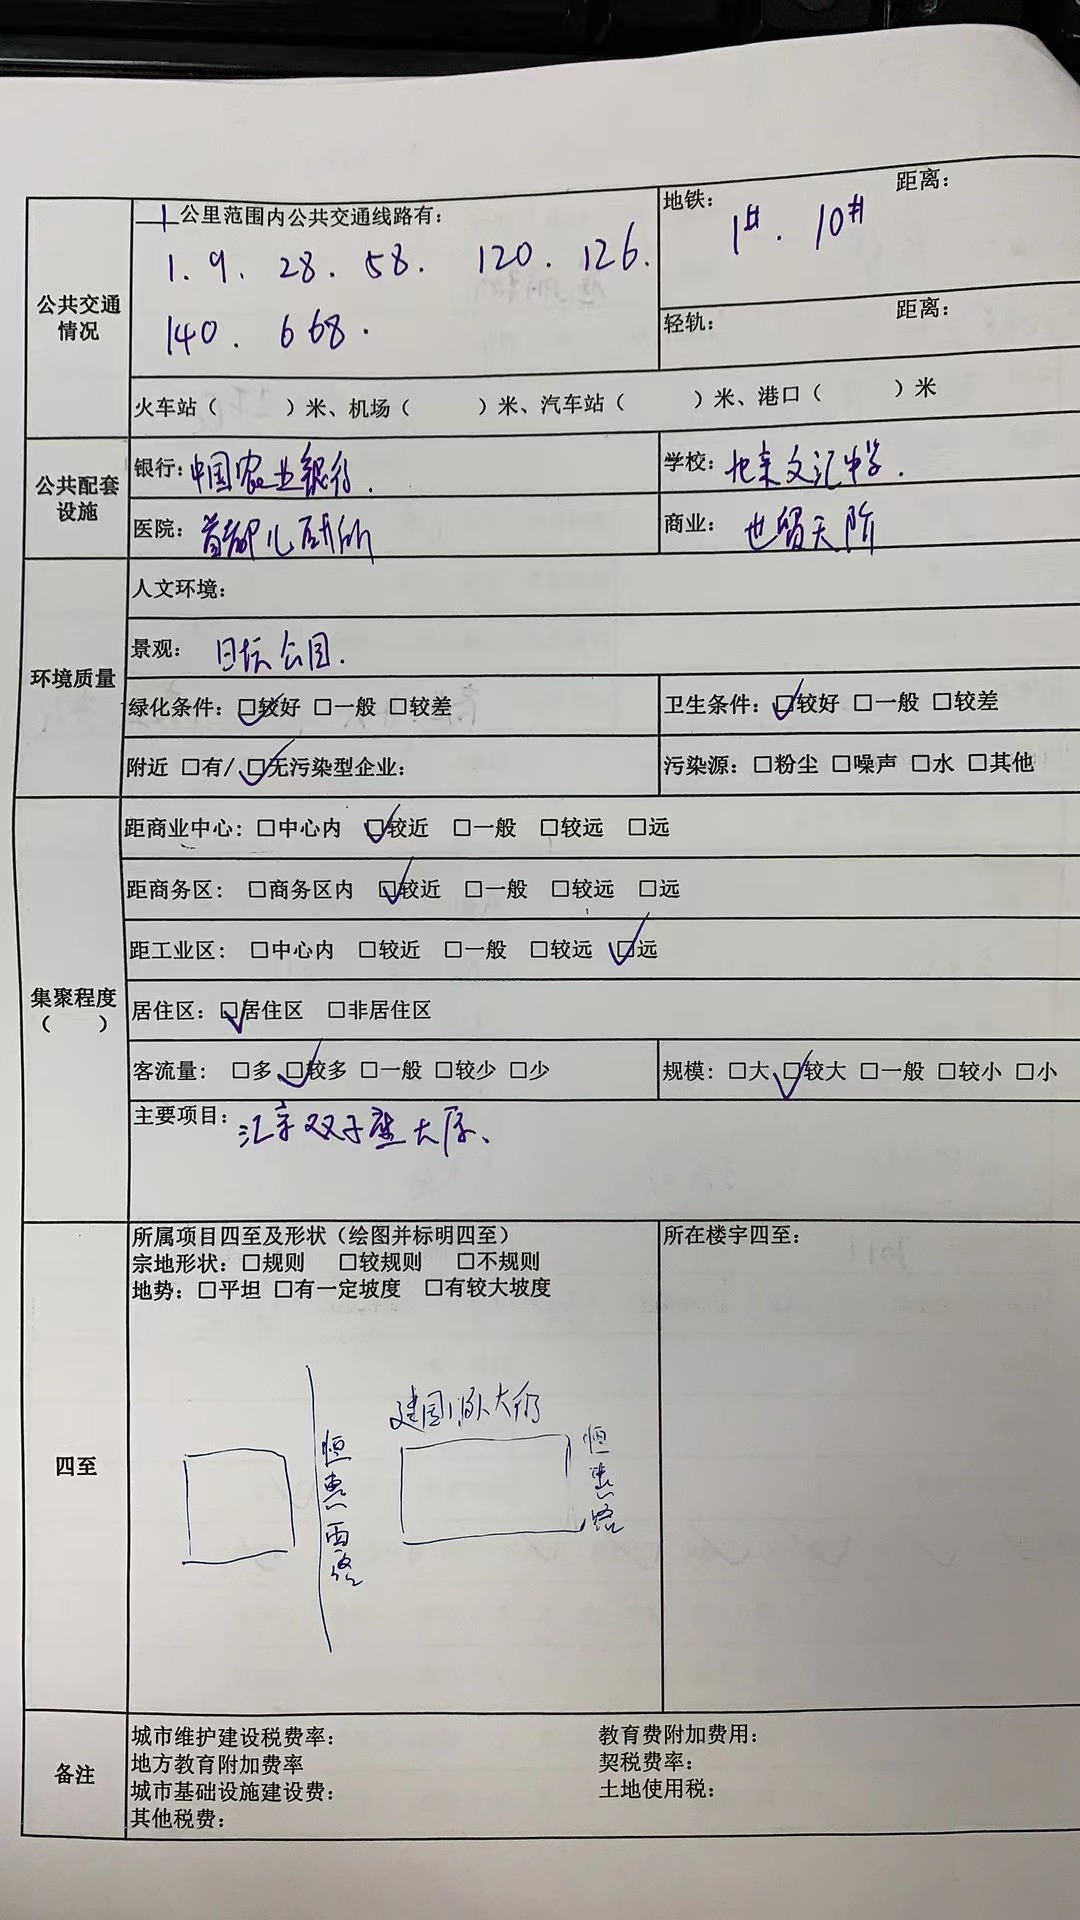 公共交通情况
1公里范围内公共交通线路有：
1. 9. 28. 58. 120. 126.
140. 668.
地铁： 距离：
1#. 10#
轻轨： 距离：
火车站（ ）米、机场（ ）米、汽车站（ ）米、港口（ ）米
公共配套设施
银行：中国农业银行. 学校：北京文汇中学.
医院：首都儿研所 商业：世贸天阶
环境质量
人文环境：
景观： 日坛公园.
绿化条件：☑较好 □一般 □较差 卫生条件：☑较好 □一般 □较差
附近 □有/ ☑无污染型企业： 污染源：□粉尘 □噪声 □水 □其他
集聚程度
（ ）
距商业中心：□中心内 ☑较近 □一般 □较远 □远
距商务区： □商务区内 ☑较近 □一般 □较远 □远
距工业区： □中心内 □较近 □一般 □较远 ☑远
居住区：☑居住区 □非居住区
客流量： □多 ☑较多 □一般 □较少 □少 规模：□大 ☑较大 □一般 □较小 □小
主要项目：汇京双子座大厦、
四至
所属项目四至及形状（绘图并标明四至）
宗地形状：□规则 □较规则 □不规则
地势：□平坦 □有一定坡度 □有较大坡度
所在楼宇四至：
建国门外大街
恒惠西路
恒惠路
备注
城市维护建设税费率： 教育费附加费用：
地方教育附加费率 契税费率：
城市基础设施建设费： 土地使用税：
其他税费：